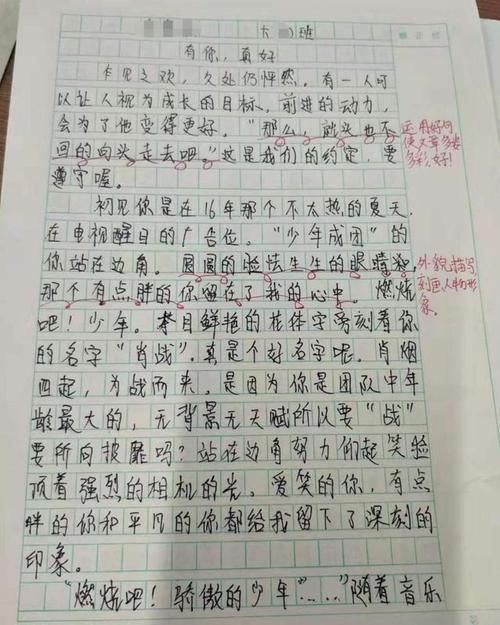 六 班
有你，真好
乍见之欢，久处仍怦然。有一人可
以让人视为成长的目标，前进的动力，
会为了他变得更好。“那么，就头也不
回的向头走去吧。”这是我们的约定，要
遵守喔。
运用好句
使文章多姿
多彩，好！
初见你是在16年那个不太热的夏天，
在电视醒目的广告位。“少年成团”的
你站在边角。圆圆的脸怯生生的眼睛和
那个有点胖的你留在了我的心中。燃烧
吧！少年。夺目鲜艳的花体字旁刻着你
的名字“肖战”。真是个好名字呢。肖烟
四起，为战而来。是因为你是团队中年
龄最大的，无背景无天赋所以要“战”
要所向披靡吗？站在边角努力们起笑脸
顶着强烈的相机的光。爱笑的你，有点
胖的你和平凡的你都给我留下了深刻的
印象。
外貌描写
刻画人物形
象。
“燃烧吧！骄傲的少年“……”随着音乐